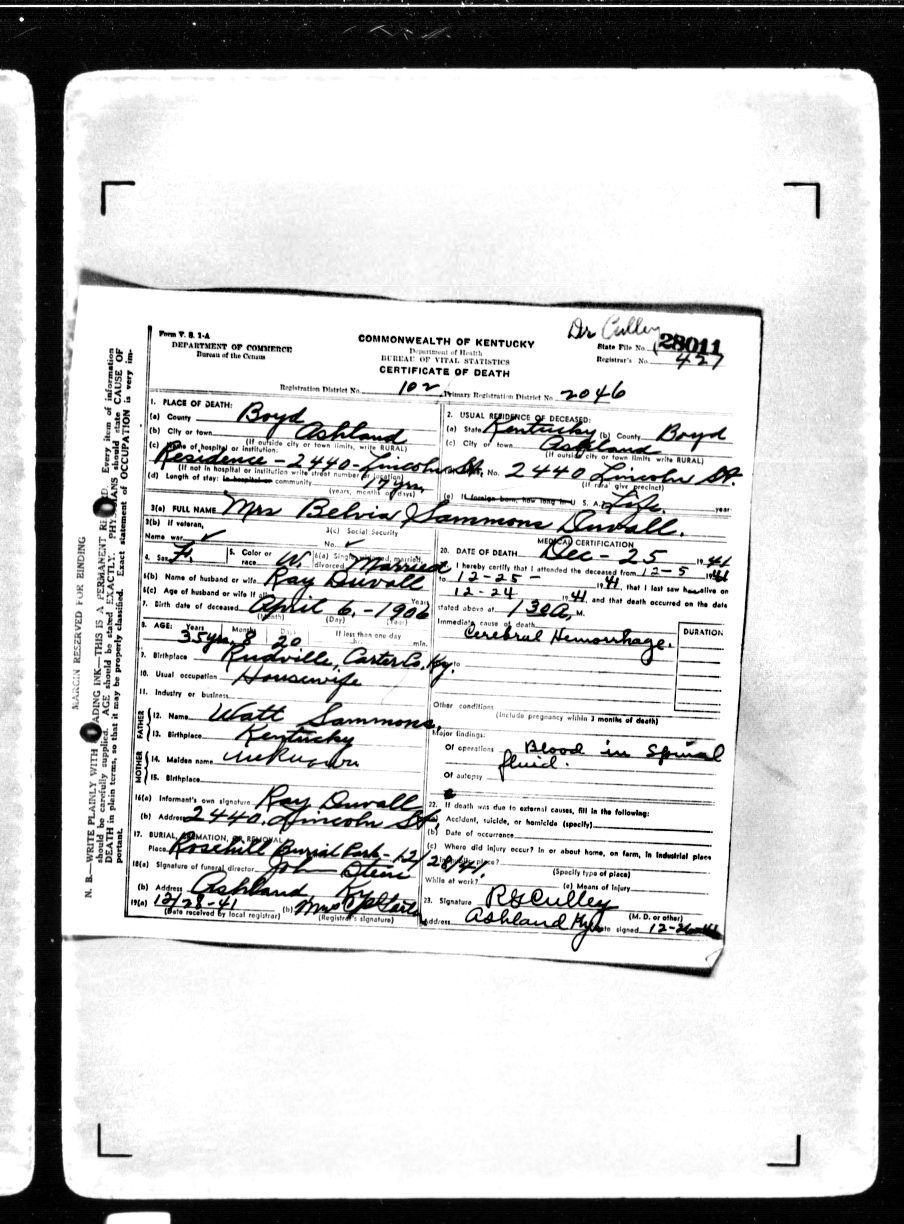 Form V. S. 1-A
DEPARTMENT OF COMMERCE
Bureau of the Census
COMMONWEALTH OF KENTUCKY
Department of Health
BUREAU OF VITAL STATISTICS
CERTIFICATE OF DEATH
Dr Culley
State File No. 28011
Registrar's No. 427
Registration District No. 102 Primary Registration District No. 2046
1. PLACE OF DEATH:
(a) County Boyd
(b) City or town Ashland
(If outside city or town limits, write RURAL)
(c) Name of hospital or institution:
Residence - 2440 - Lincoln St.
(If not in hospital or institution write street number or location)
(d) Length of stay: In hospital or community 17 yrs
(years, months or days)
2. USUAL RESIDENCE OF DECEASED:
(a) State Kentucky (b) County Boyd
(c) City or town Ashland
(If outside city or town limits write RURAL)
No. 2440 Lincoln St.
(If rural give precinct)
(e) If foreign born, how long in U. S. A. Life year
3(a) FULL NAME Mrs Belvia Sammons Duvall.
3(b) If veteran,
Name war
3(c) Social Security
No.
4. Sex F. 5. Color or race W. 6(a) Single, widowed, married, divorced Married
6(b) Name of husband or wife Ray Duvall
6(c) Age of husband or wife if alive Years
7. Birth date of deceased April 6. - 1906
(Month) (Day) (Year)
8. AGE: Years Months Days If less than one day
35 yrs. 8 20 hr. min.
9. Birthplace Rudville, Carter Co. Ky.
10. Usual occupation Housewife
11. Industry or business
FATHER
12. Name Watt Sammons.
13. Birthplace Kentucky
MOTHER
14. Maiden name unknown
15. Birthplace
16(a) Informant's own signature Ray Duvall
(b) Address 2440. Lincoln St.
17. BURIAL, CREMATION, OR REMOVAL
Place Rosehill Burial Park - 12/28/41.
18(a) Signature of funeral director John Steen
(b) Address Ashland Ky
19(a) 12/28-41 (b) Mrs
(Date received by local registrar) (Registrar's signature)
MEDICAL CERTIFICATION
20. DATE OF DEATH Dec - 25 1941
I hereby certify that I attended the deceased from 12-5 1941
to 12-25- 1941, that I last saw h alive on
12-24 1941, and that death occurred on the date
stated above at 130A, M.
Immediate cause of death
Cerebral Hemorrhage.
DURATION
to
Other conditions
(Include pregnancy within 3 months of death)
Major findings:
Of operations Blood in Spinal
fluid.
Of autopsy
22. If death was due to external causes, fill in the following:
(a) Accident, suicide, or homicide (specify)
(b) Date of occurrence
(c) Where did injury occur? In or about home, on farm, in industrial place
in public place?
(Specify type of place)
While at work? (e) Means of Injury
23. Signature RG Culley
(M. D. or other)
Address Ashland Ky Date signed 12-26-41
MARGIN RESERVED FOR BINDING
N. B.—WRITE PLAINLY WITH UNFADING INK—THIS IS A PERMANENT RECORD. Every item of information
should be carefully supplied. AGE should be stated EXACTLY. PHYSICIANS should state CAUSE OF
DEATH in plain terms, so that it may be properly classified. Exact statement of OCCUPATION is very im-
portant.